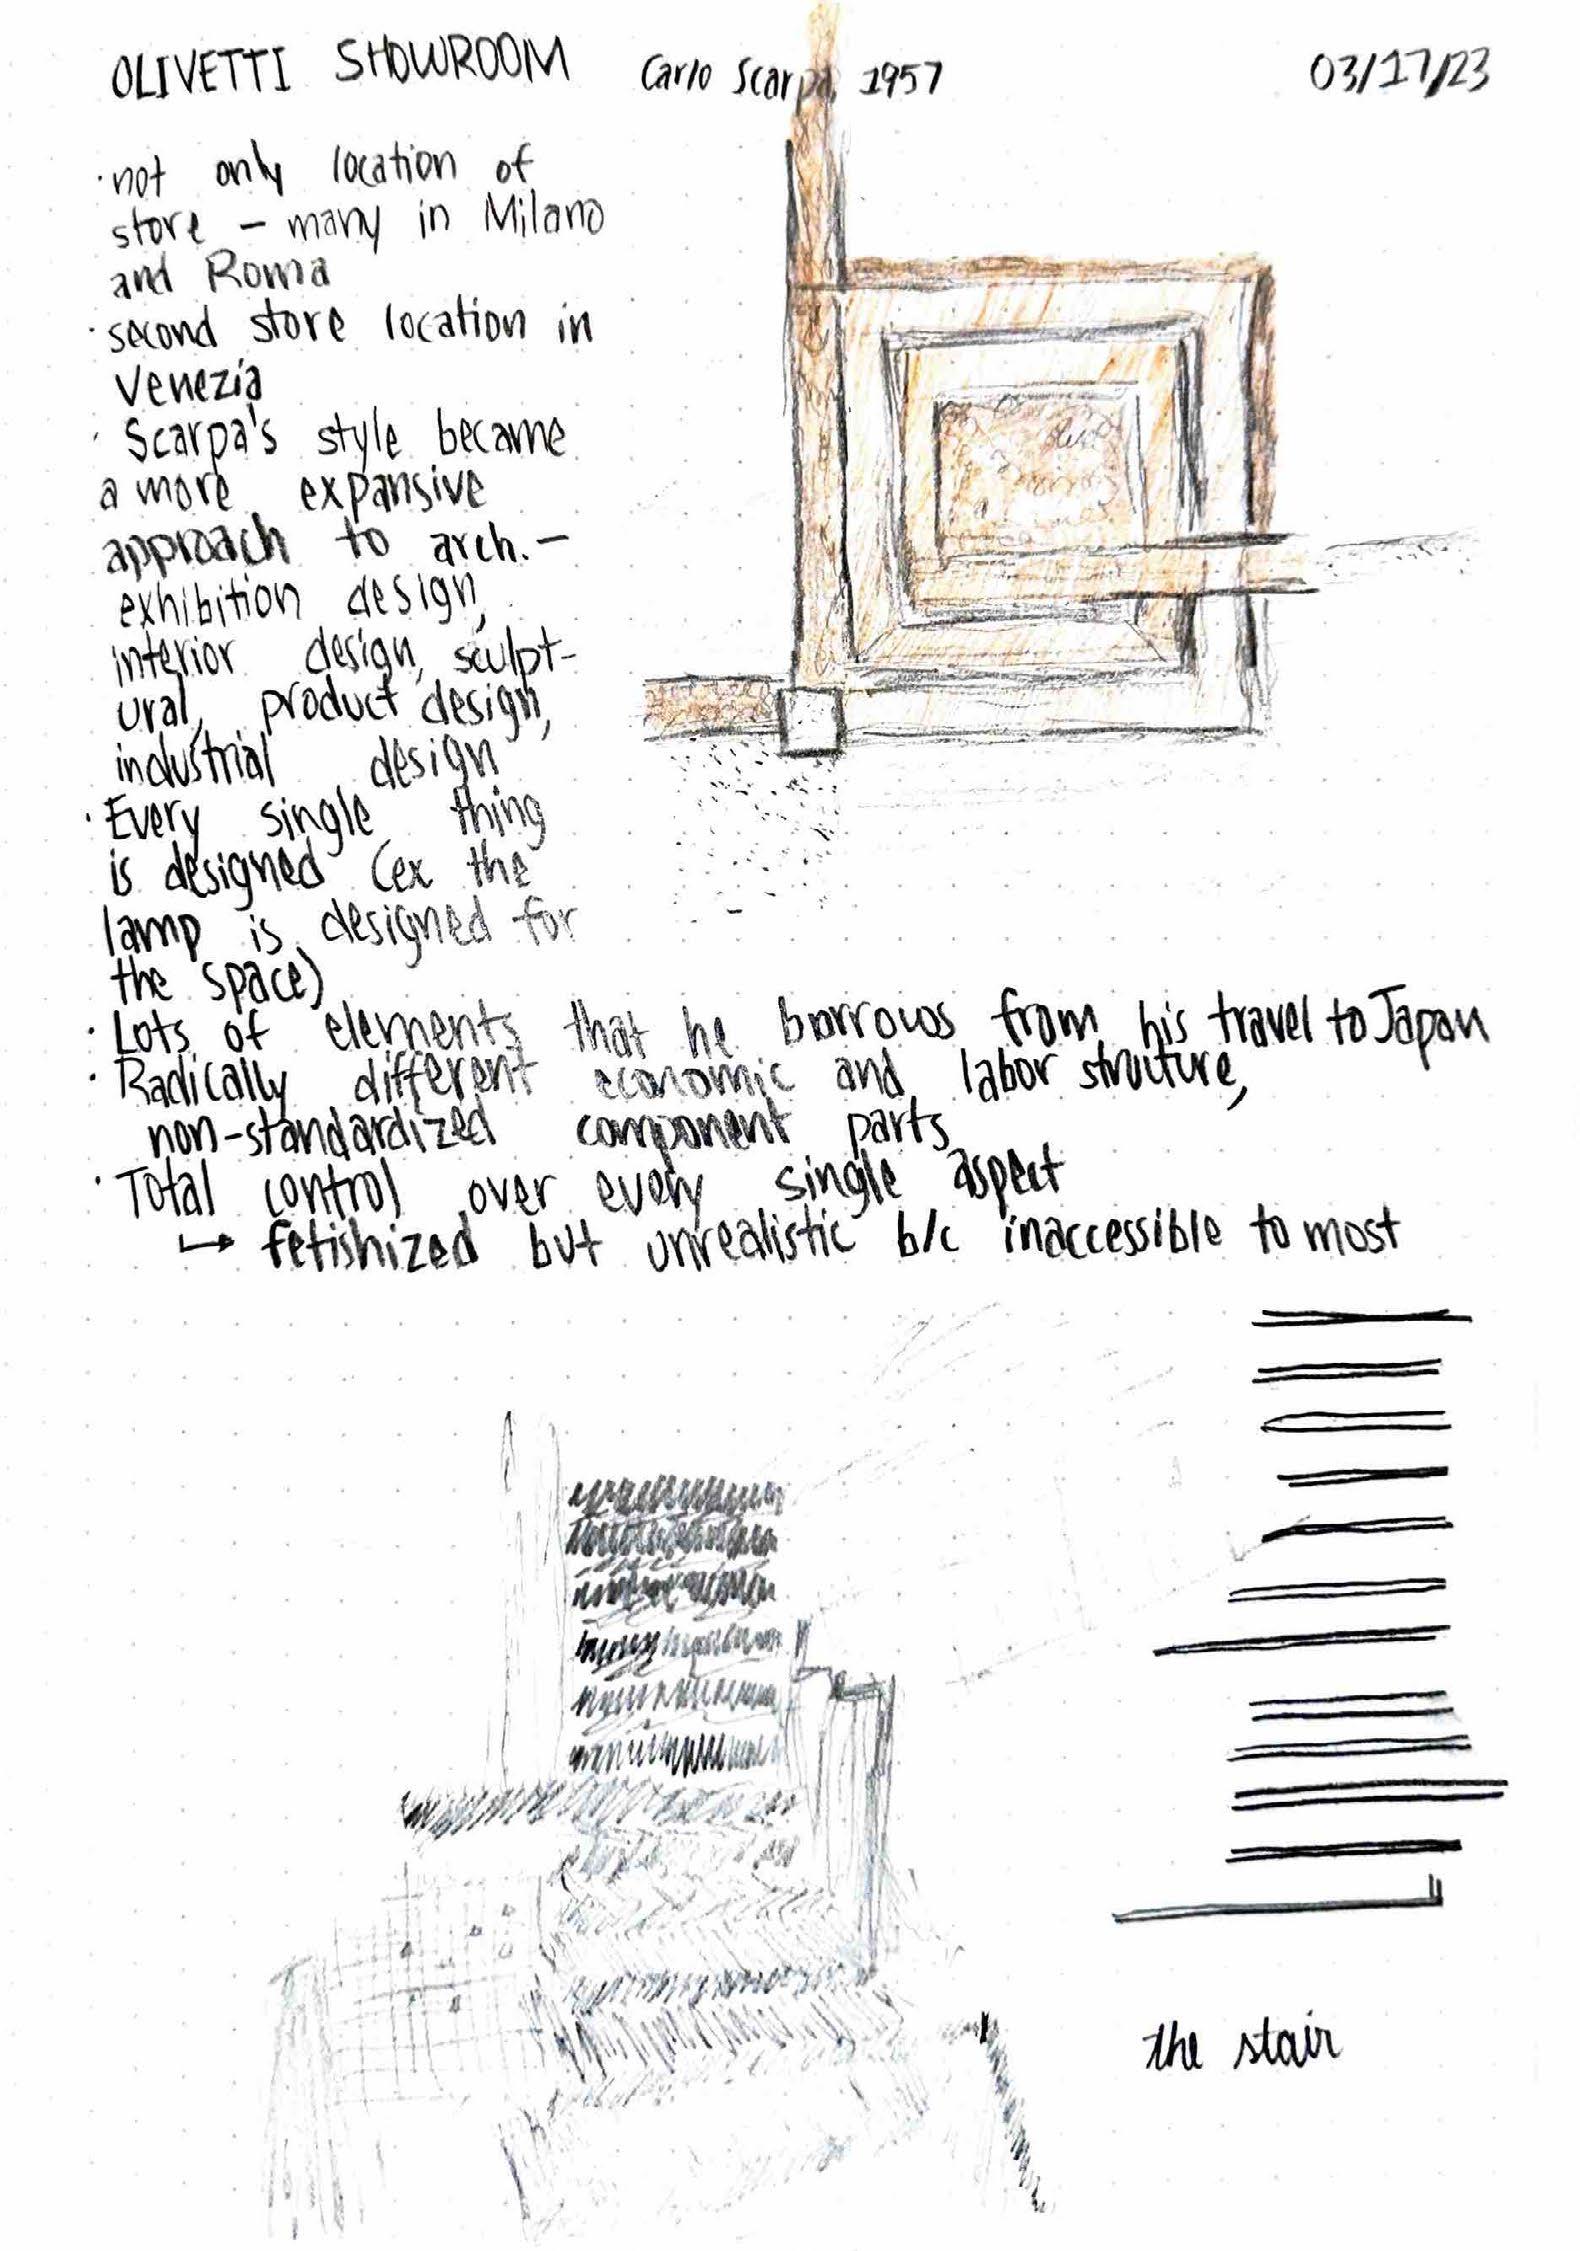 OLIVETTI SHOWROOM Carlo Scarpa, 1957 03/17/23
· not only location of
store – many in Milano
and Roma
· second store location in
Venezia
· Scarpa's style became
a more expansive
approach to arch. –
exhibition design,
interior design, sculpt-
ural, product design,
industrial design
· Every single thing
is designed (ex the
lamp is designed for
the space)
· Lots of elements that he borrows from his travel to Japan
· Radically different economic and labor structure,
non-standardized component parts
· Total control over every single aspect
↳ fetishized but unrealistic b/c inaccessible to most
the stair